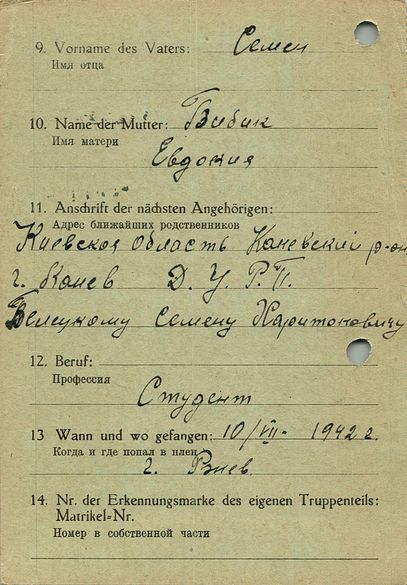 9. Vorname des Vaters: Семен
Имя отца
10. Name der Mutter: Бибик
Имя матери
Евдокия
11. Anschrift der nächsten Angehörigen:
Адрес ближайших родственников
Киевская область Каневский р-он
г. Канев Д. У. Р. П.
Белецкому Семену Харитоновичу
12. Beruf:
Профессия
Студент
13 Wann und wo gefangen: 10/VII- 1942 г.
Когда и где попал в плен
г. Ржев
14. Nr. der Erkennungsmarke des eigenen Truppenteils:
Matrikel-Nr.
Номер в собственной части